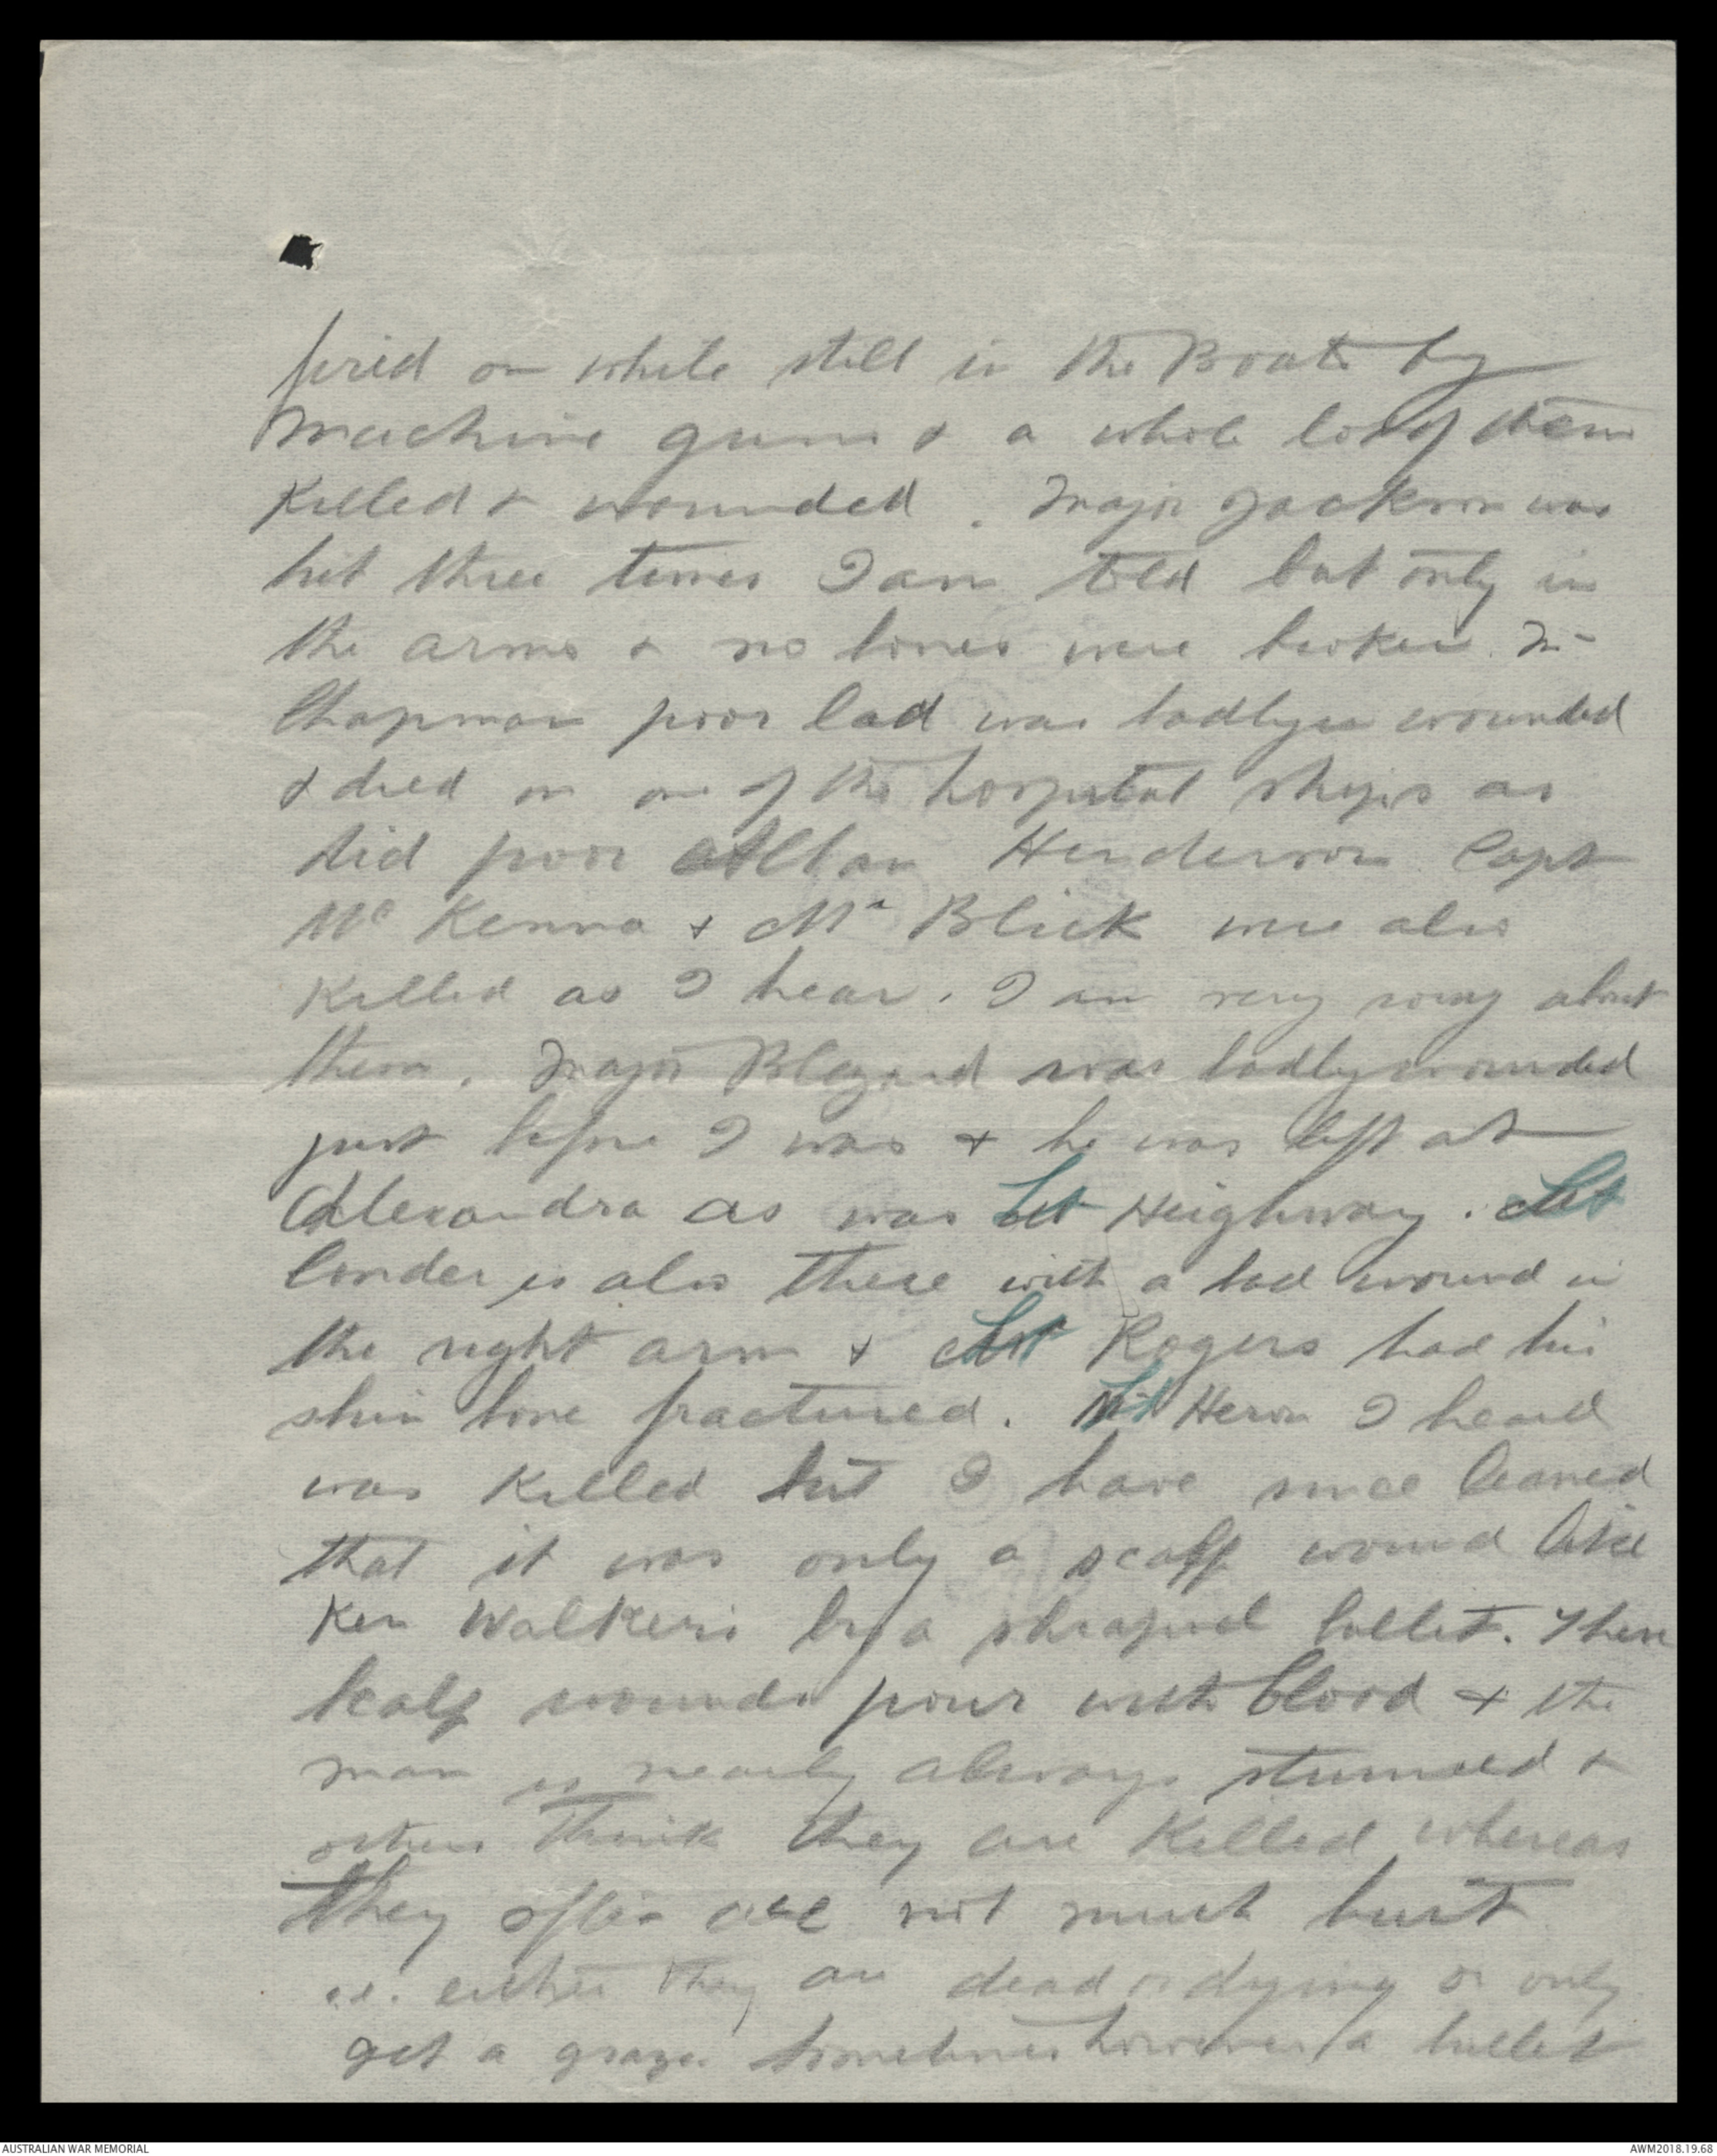 fired on while still in the Boats by
machine guns & a whole lot of them
Killed & wounded. Major Jackson was
hit three times I am told but only in
the arms & no bones were broken. Mr
Chapman poor lad was badly wounded
& died on one of the hospital ships as
did poor Allan Henderson Capt
McKenna & Mr Blick were also
Killed as I hear. I am very sorry about
them. Major Blezard was badly wounded
just before I was & he was left at
Alexandra as was Lt Heighway. Lt
Conder is also there with a bad wound in
the right arm & Lt Rogers had his
shin bone fractured. Lt Heron I heard
was Killed but I have since learned
that it was only a scalp wound like
Ken Walkers by a shrapnel bullet. These
scalp wounds pour with blood & the
man is nearly always stunned &
others think they are Killed whereas
they often are not much hurt
i.e. either they are dead or dying or only
get a graze. Sometimes however a bullet
AUSTRALIAN WAR MEMORIAL
AWM2018.19.68